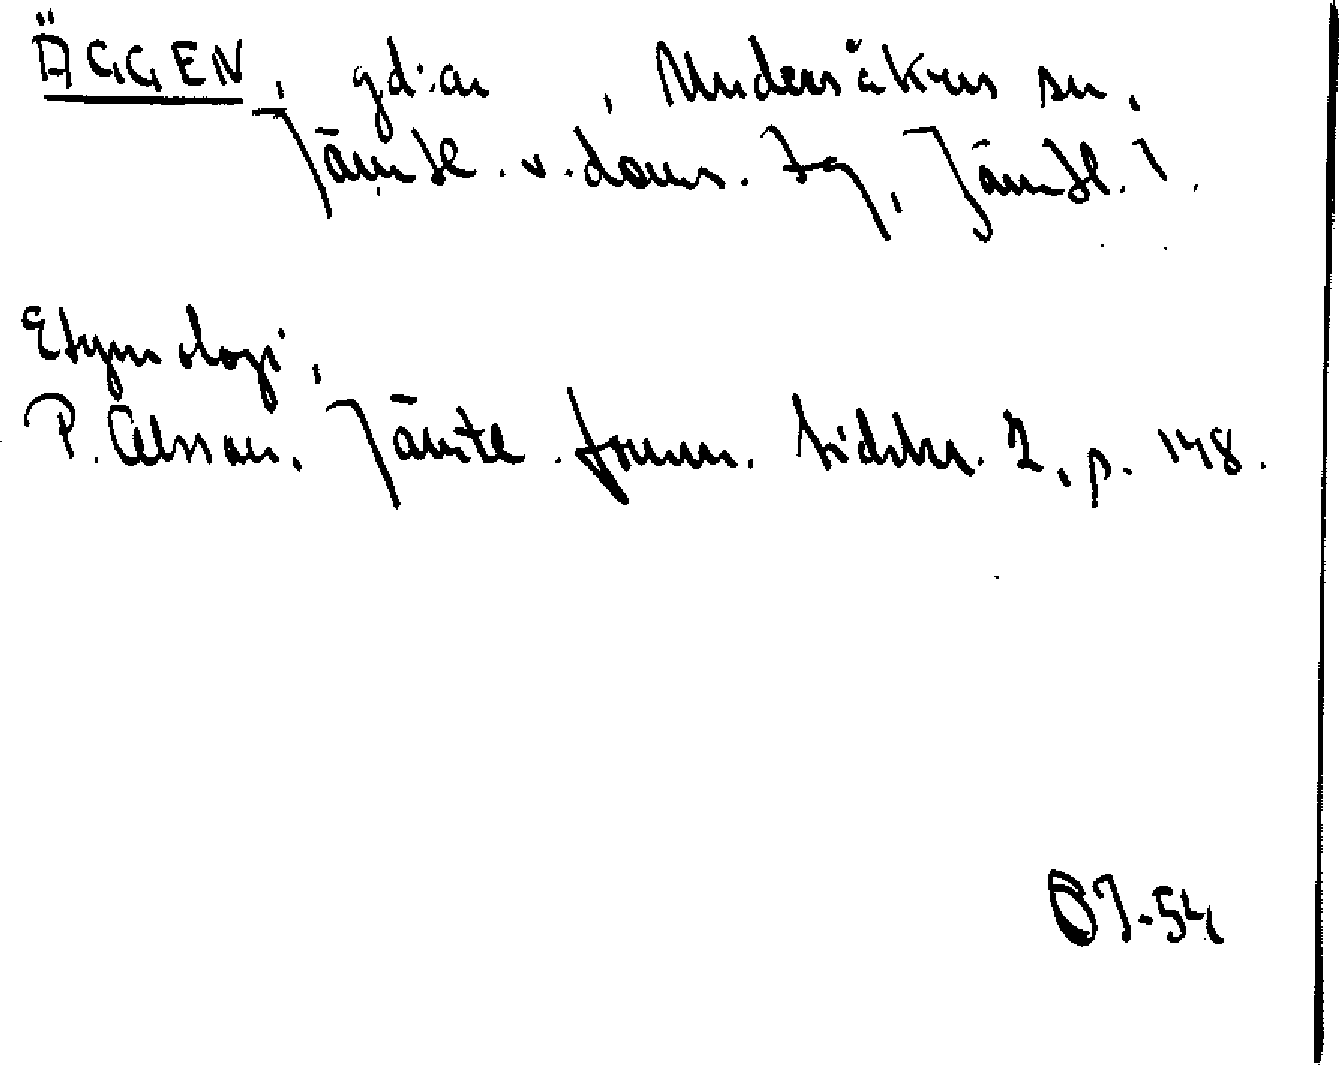 ÄGGEN, gd:ar, Undersåkers sn,
Jämtl. v. doms. tg, Jämtl. l.
Etymologi,
P. Olsson, Jämtl. fornm. tidskr. 2, p. 148.
ÖJ-54